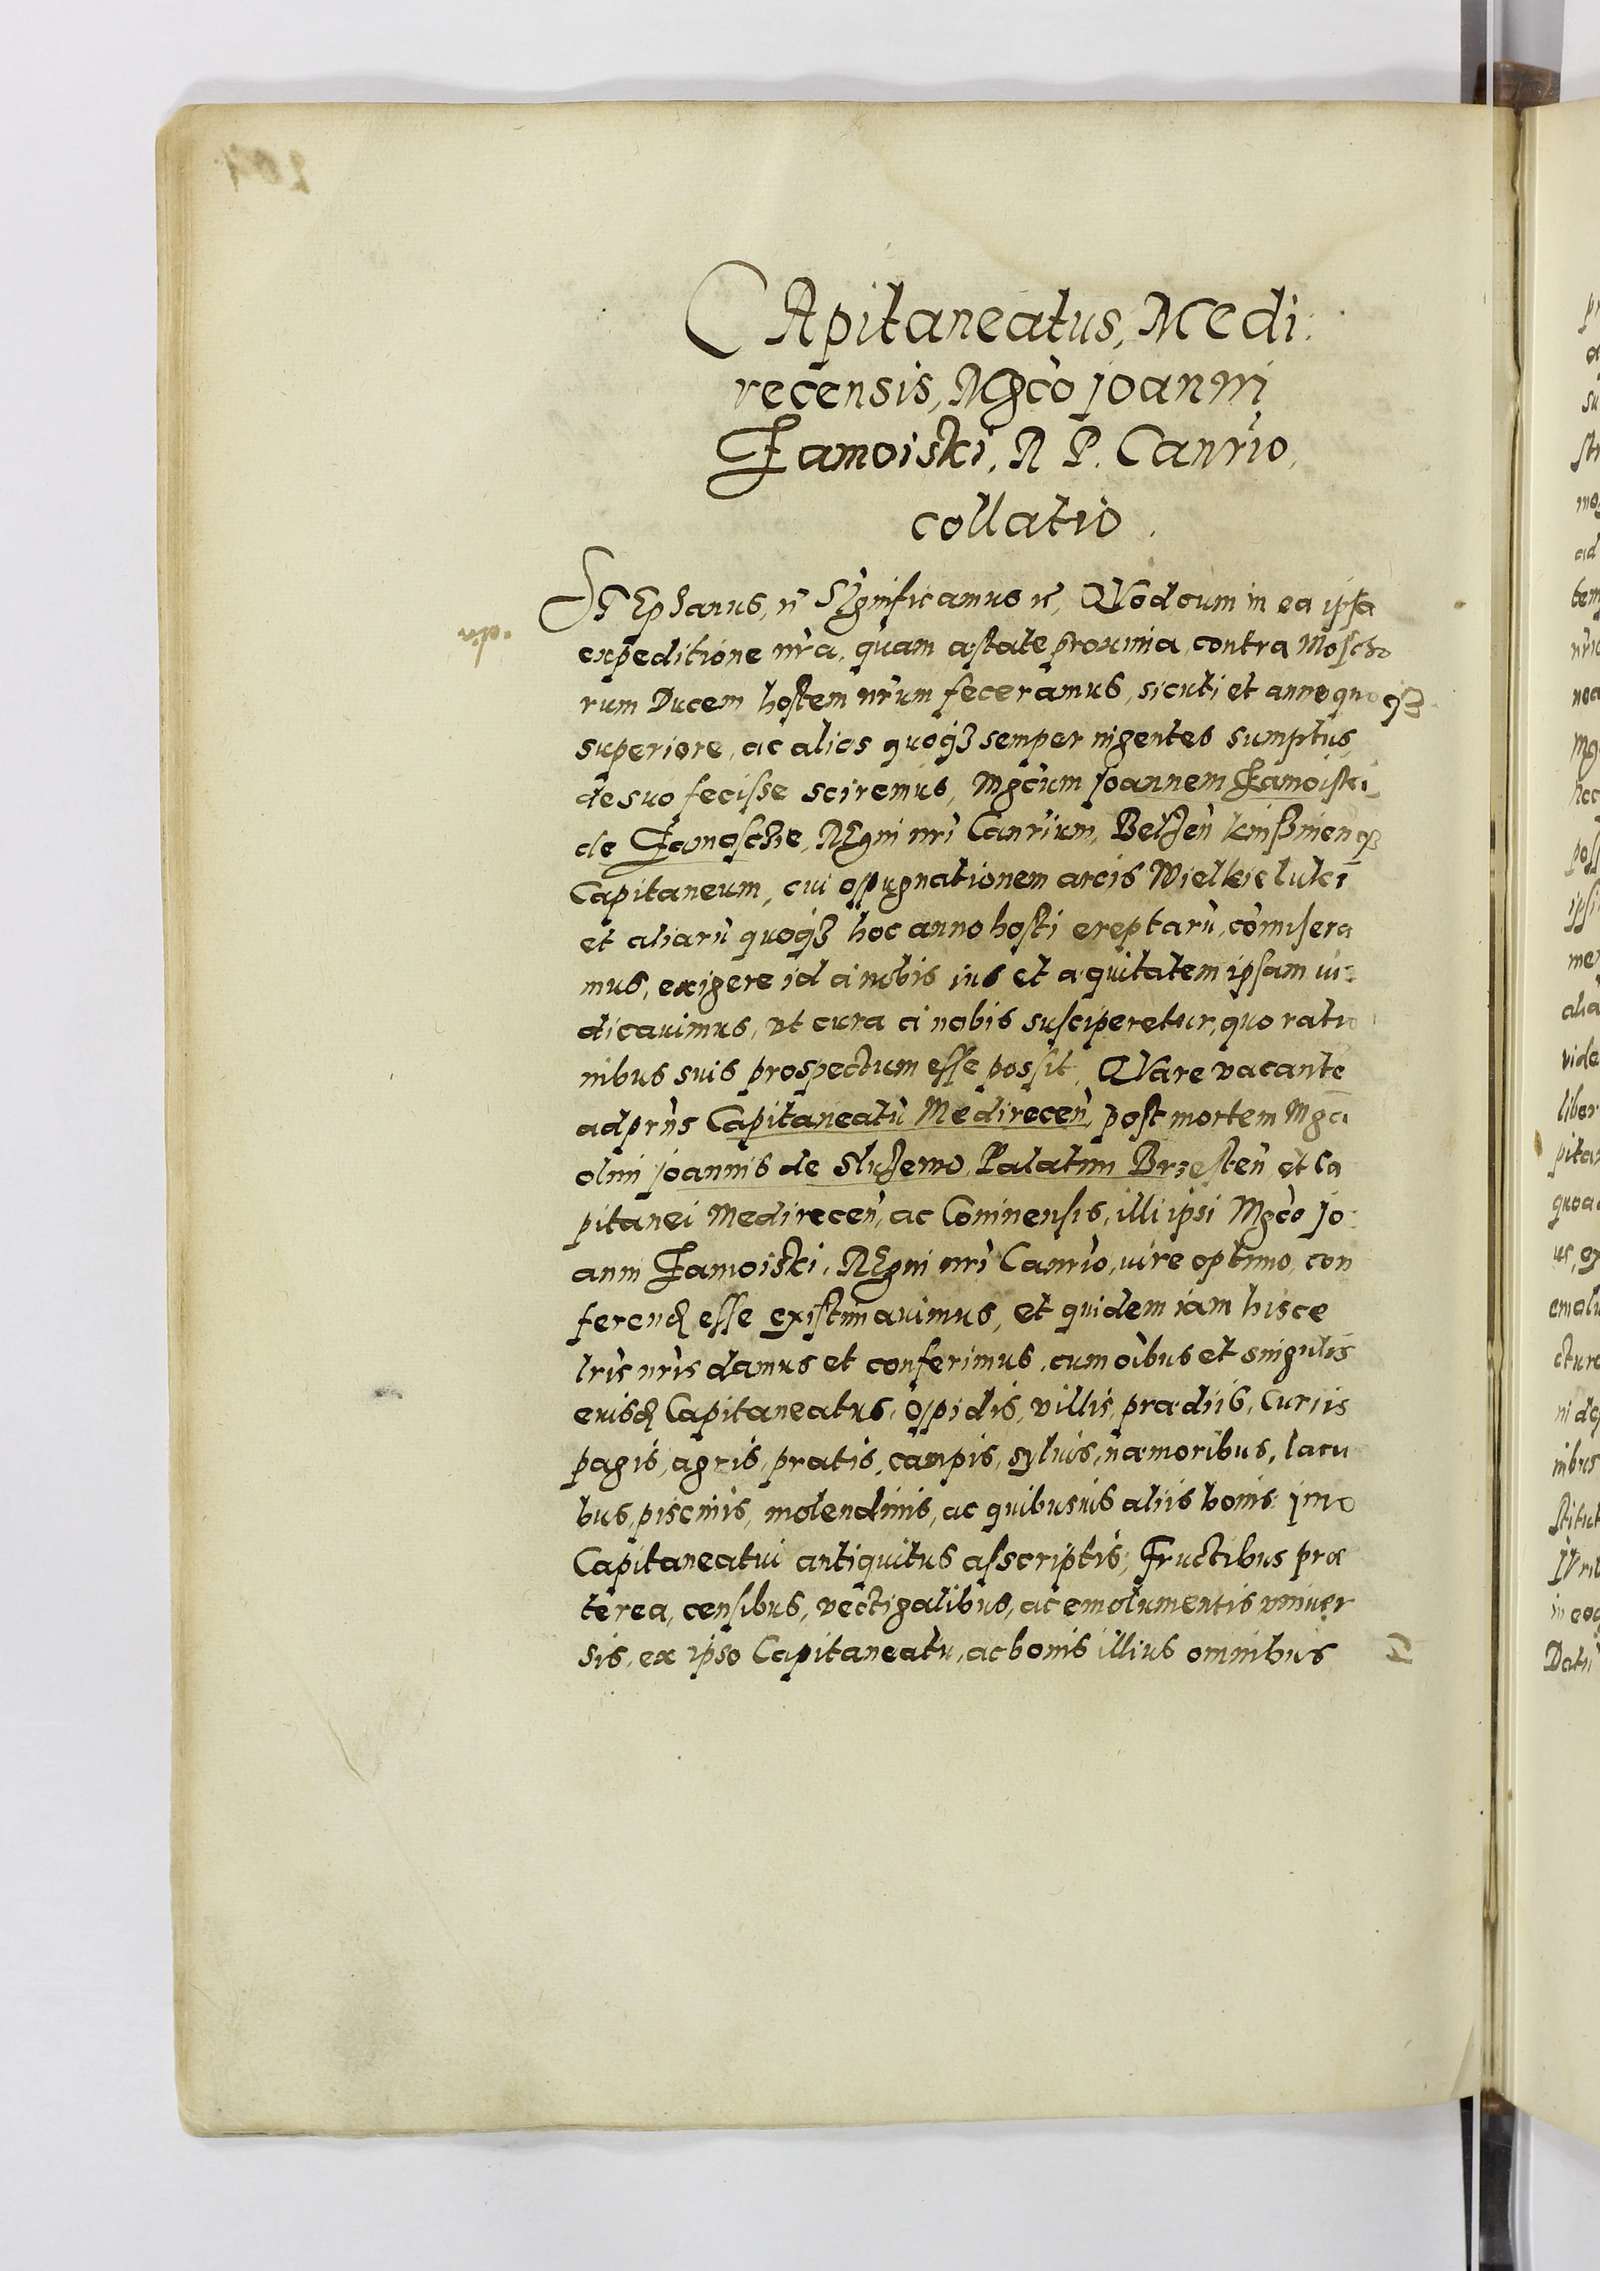 CApitaneatus, Medi:
recensis, Mgco joanni
Zamoiski, R P. Canrio,
collatio.
STEphanus, rc Significamus rc, QVod cum in ea ipsa
expeditione nra, quam æstate proxima, contra Moscho
rum Ducem hostem nrum feceramus, sicuti et anno quoqз
superiore, ac alias quoqз semper ingentes sumptus,
de suo fecisse sciremus, Mgcum joannem Zamoiski
de Zamosczie, REgni nri Canrium, Belzen knissinenqз
Capitaneum, cui oppugnationem arcis Wielkieluki
et aliaru quoqз hoc anno hosti ereptaru, comisera
mus, exigere id a nobis ius et æquitatem ipsam iu:
dicauimus, vt cura a nobis susciperetur, quo ratio
nibus suis prospectum esse possit, QVare vacante
ad prns Capitaneatu Medirecen, post mortem Mgci
olim joannis de Sluzewo, Palatini Brzesten, et Ca
pitanei Medirecen, ac Coninensis, illi ipsi Mgco jo:
anni Zamoiski, REgni nri Canrio, viro optimo, con
ferend esse existimauimus, et quidem iam hisce
lris nris damus et conferimus, cum oibus et singulis
eiusd Capitaneatus, oppidis, villis, prædiis, Curiis
pagis, agris, pratis, campis, syluis, nemoribus, lacu
bus, piscinis, molendinis, ac quibusuis aliis bonis imo
Capitaneatui antiquitus asscriptis, Fructibus præ
terea, censibus, vectigalibus, ac emolumentis vniuer
sis, ex ipso Capitaneatu, ac bonis illius omnibus